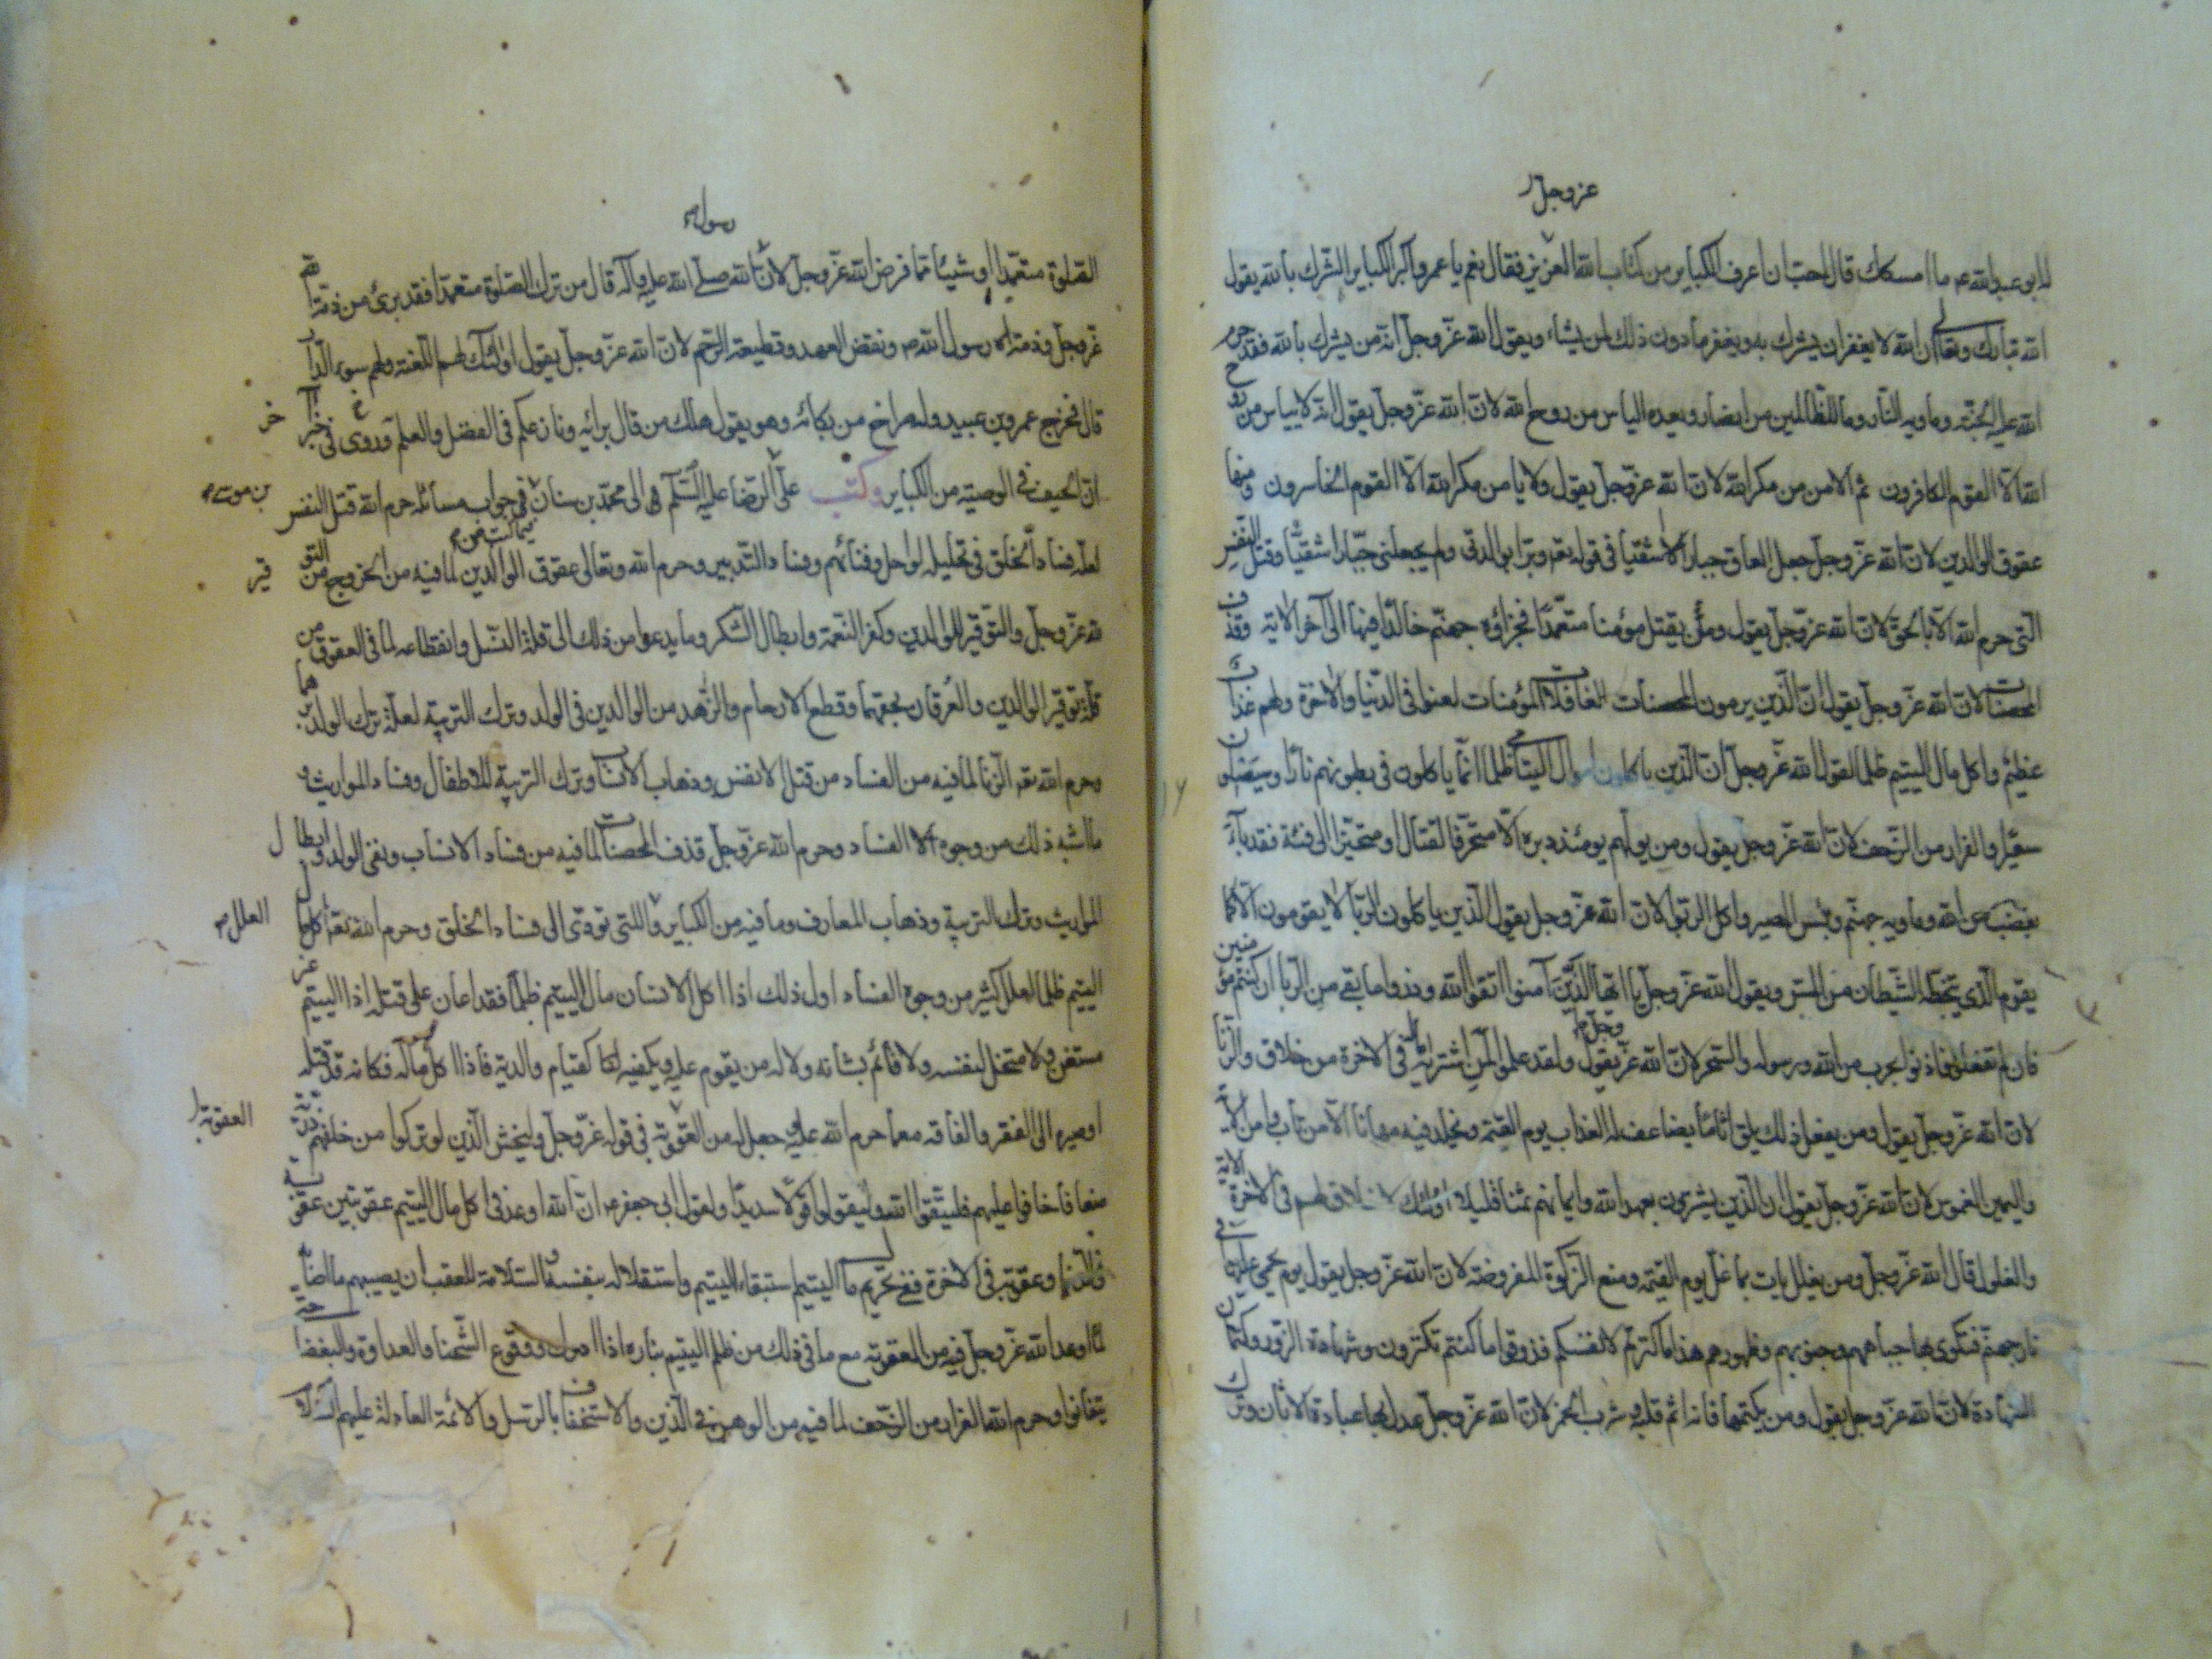 عز وجل
له ابو عبد الله عم ما امسكك قال احب ان اعرف الكباير من كتاب الله العزيز فقال نعم يا عمرو اكبر الكباير الشرك بالله يقول
الله تبارك وتعالى ان الله لا يغفر ان يشرك به ويغفر ما دون ذلك لمن يشاء ويقول الله عز وجل انه من يشرك بالله فقد حرم
الله عليه الجنة وماويه النار وما للظالمين من انصار وبعده الياس من روح الله لان الله عز وجل يقول انه لا يياس من روح
الله الا القوم الكافرون ثم الامن من مكر الله لان الله عز وجل يقول ولا يامن مكر الله الا القوم الخاسرون ومنها
عقوق الوالدين لان الله عز وجل جعل العاق جبارا شقيا في قوله تعه وبرا بوالدتي ولم يجعلني جبارا شقيا وقتل النفس
التي حرم الله الا بالحق لان الله عز وجل يقول ومن يقتل مؤمنا متعمدا فجزاؤه جهنم خالدا فيها الى آخر الاية وقذف
المحصنات لان الله عز وجل يقول ان الذين يرمون المحصنات الغافلات المؤمنات لعنوا في الدنيا والاخرة ولهم عذاب
عظيم واكل مال اليتيم ظلما لقول الله عز وجل ان الذين ياكلون اموال اليتامى ظلما انما ياكلون في بطونهم نارا وسيصلون
سعيرا والفرار من الزحف لان الله عز وجل يقول ومن يولهم يومئذ دبره الا متحرفا لقتال او متحيزا الى فئة فقد باء
بغضب من الله وماويه جهنم وبئس المصير واكل الربوا لان الله عز وجل يقول الذين ياكلون الربا لا يقومون الا كما
يقوم الذي يتخبطه الشيطان من المس ويقول الله عز وجل يا ايها الذين آمنوا اتقوا الله وذروا ما بقي من الربا ان كنتم مؤمنين
فان لم تفعلوا فاذنوا بحرب من الله ورسوله والسحر لان الله عز وجل يقول ولقد علموا لمن اشتراه ماله في الاخرة من خلاق والزنا
لان الله عز وجل يقول ومن يفعل ذلك يلق اثاما يضاعف له العذاب يوم القيمة ويخلد فيه مهانا الا من تاب وامن الاية
واليمين الغموس لان الله عز وجل يقول ان الذين يشترون بعهد الله وايمانهم ثمنا قليلا اولئك لا خلاق لهم في الاخرة الاية
والغلول قال الله عز وجل ومن يغلل يات بما غل يوم القيمة ومنع الزكوة المفروضة لان الله عز وجل يقول يوم يحمى عليها في
نار جهنم فتكوى بها جباههم وجنوبهم وظهورهم هذا ما كنزتم لانفسكم فذوقوا ما كنتم تكنزون وشهادة الزور وكتمان
الشهادة لان الله عز وجل يقول ومن يكتمها فانه اثم قلبه وشرب الخمر لان الله عز وجل عدل بها عبادة الاوثان وترك
رسول
الصلوة متعمدا او شيئا مما فرض الله عز وجل لان الله صلى الله عليه وآله قال من ترك الصلوة متعمدا فقد برئ من ذمة الله
عز وجل وذمة رسول الله ص ونقض العهد وقطيعة الرحم لان الله عز وجل يقول اولئك لهم اللعنة ولهم سوء الدار
قال فخرج عمرو بن عبيد وله صراخ من بكائه وهو يقول هلك من قال برائه ونازعكم في الفضل والعلم وروى في خبر آخر
ان الحيف في الوصية من الكباير وكتب على الرضا عليه السلم الى محمد بن سنان في جواب مسائله حرم الله قتل النفس
فيما كتب من
لعلة فساد الخلق في تحليله لو احل وفنائهم وفساد التدبير وحرم الله وتعالى عقوق الوالدين لما فيه من الخروج من التوقير
لله عز وجل والتوقير للوالدين وكفر النعمة وابطال الشكر وما يدعوا من ذلك الى قلة النسل وانقطاعه لما في العقوق من
قلة توقير الوالدين والعرفان بحقهما وقطع الارحام والزهد من الوالدين في الولد وترك التربية لعلة ترك الولد برهما
وحرم الله تعه الزنا لما فيه من الفساد من قتل الانفس وذهاب الانساب وترك التربية للاطفال وفساد المواريث و
ما اشبه ذلك من وجوه الفساد وحرم الله عز وجل قذف المحصنات لما فيه من فساد الانساب ونفي الولد وابطال
المواريث وترك التربية وذهاب المعارف وما فيه من الكباير واللتي تؤدي الى فساد الخلق وحرم الله تعه اكل مال
العلل
اليتيم ظلما لعلل كثير من وجوه الفساد اول ذلك اذا اكل الانسان مال اليتيم ظلما فقد اعان على قتله اذ اليتيم غير
مستغن ولا متحمل لنفسه ولا قائم بشانه ولا له من يقوم عليه ويكفيه كقيام والديه فاذا اكل ماله فكانه قد قتله
العقوبة
او صيره الى الفقر والفاقة مع ما حرم الله عليه وجعل له من العقوبة في قوله عز وجل وليخش الذين لو تركوا من خلفهم ذرية
ضعافا خافوا عليهم فليتقوا الله وليقولوا قولا سديدا ولقول ابي جعفر عم ان الله اوعد في اكل مال اليتيم عقوبتين عقوبة
في الدنيا وعقوبة في الاخرة ففي تحريم مال اليتيم استبقاء اليتيم واستقلاله بنفسه والسلامة للعقب ان يصيبهم ما اصابه
لما اوعد الله عز وجل فيه من العقوبة مع ما في ذلك من طلب اليتيم بثاره اذا ادرك ووقوع الشحنا والعداوة والبغضا
يتفانوا وحرم الله الفرار من الزحف لما فيه من الوهن في الدين والاستخفاف بالرسل والائمة العادلة عليهم السلام